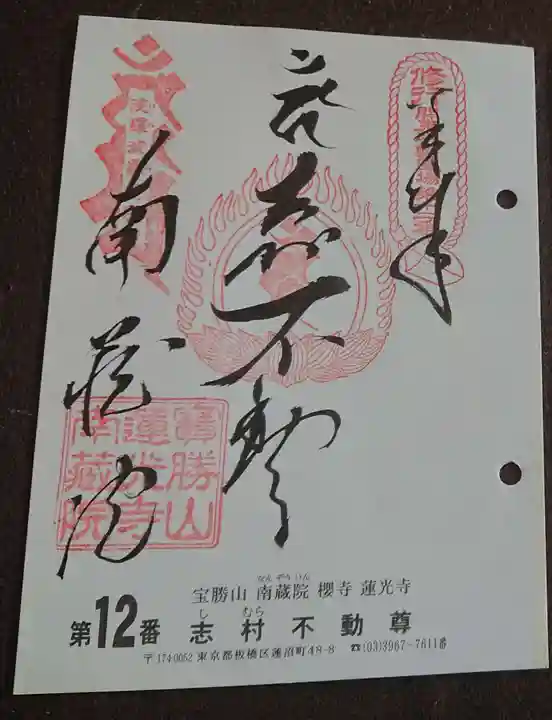 奉拝
志村不動
南蔵院
寶勝山
蓮光寺
南蔵院
なんぞういん
宝勝山 南蔵院 櫻寺 蓮光寺
し むら
第12番 志村不動尊
〒174-0052 東京都板橋区蓮沼町48-8 ☎(03)3967-7611番